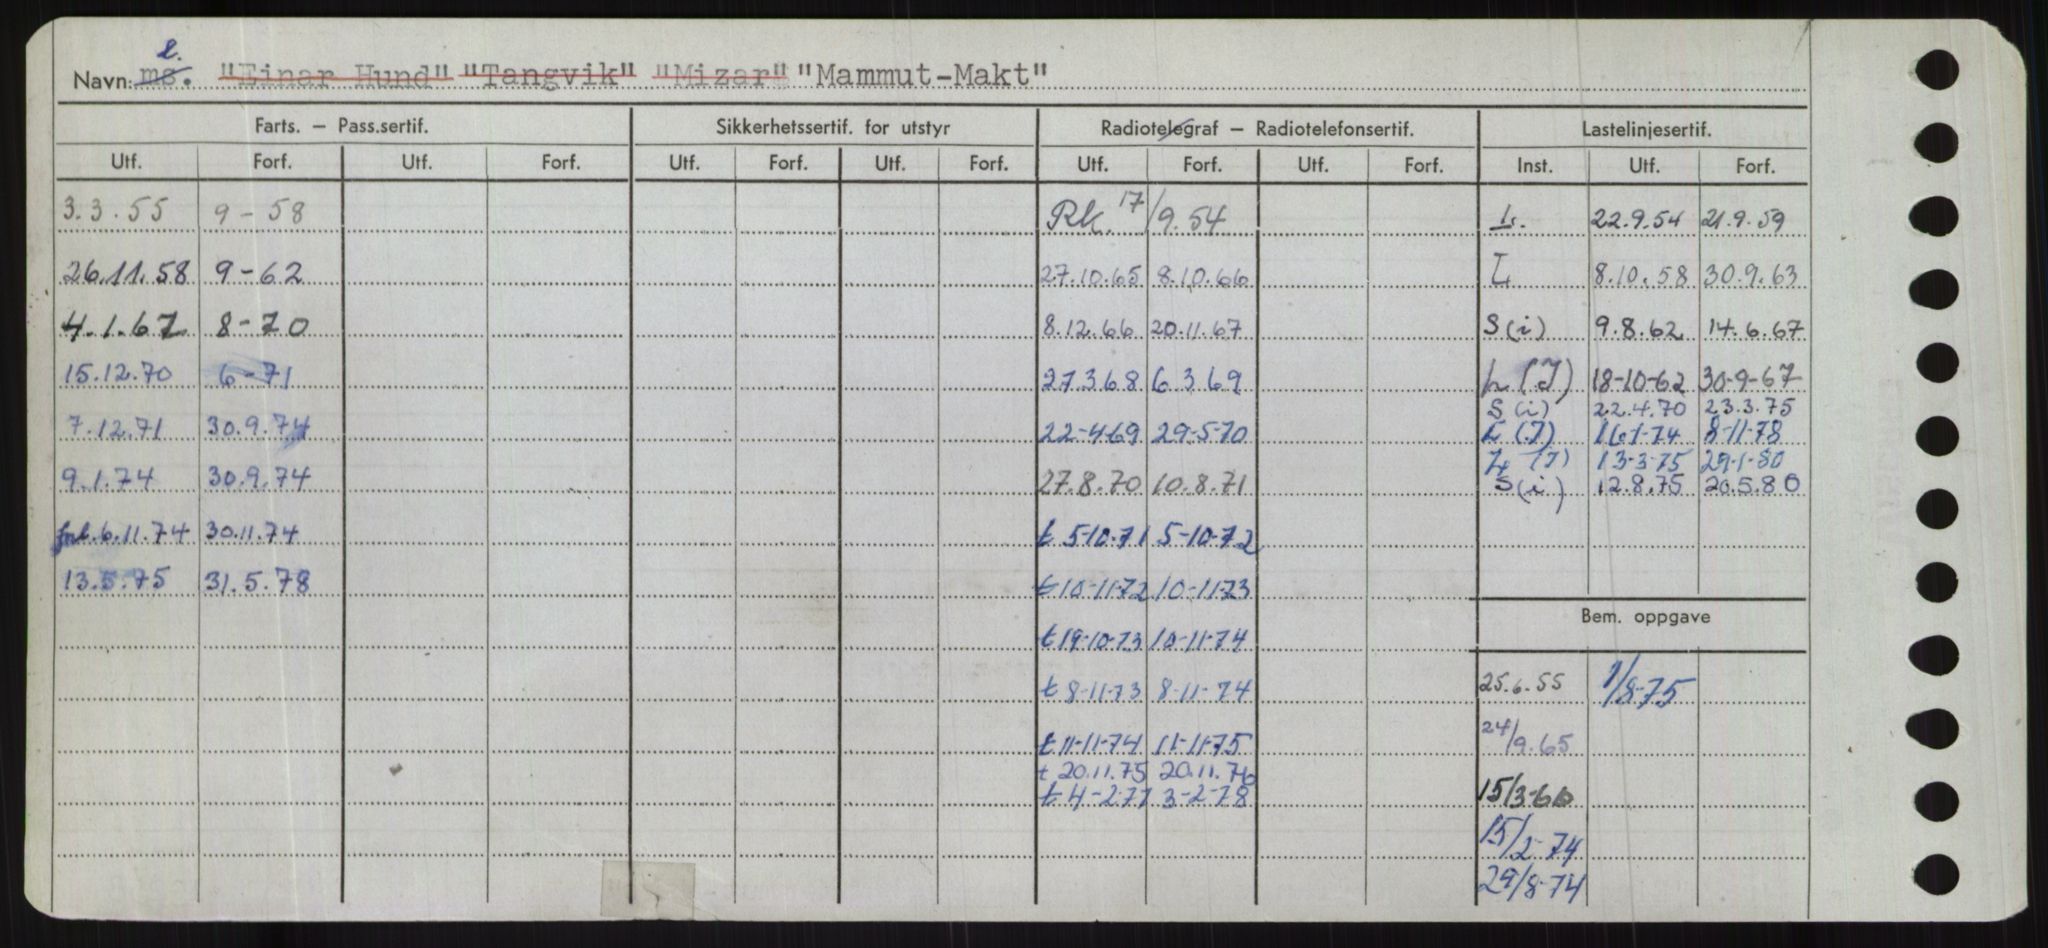 l.
Navn: ms. "Einar Hund" "Tangvik" "Mizar" "Mammut-Makt"
Farts. – Pass.sertif. Sikkerhetssertif. for utstyr Radiotelegraf – Radiotelefonsertif. Lastelinjesertif.
Utf. Forf. Utf. Forf. Utf. Forf. Utf. Forf. Utf. Forf. Utf. Forf. Inst. Utf. Forf.
3.3.55 9-58 Rk. 17/9.54 L. 22.9.54 21.9.59
26.11.58 9-62 27.10.65 8.10.66 L 8.10.58 30.9.63
4.1.67 8-70 8.12.66 20.11.67 S(i) 9.8.62 14.6.67
15.12.70 6-71 27.3.68 6.3.69 L(I) 18-10-62 30-9-67
S(i) 22.4.70 23.3.75
7.12.71 30.9.74 22-4-69 29-5-70 L(I) 16-1-74 8-11-78
L(I) 13-3-75 29-1-80
9.1.74 30.9.74 27.8.70 10.8.71 S(i) 12.8.75 20.5.80
6.11.74 30.11.74 t 5-10-71 5-10-72
13.5.75 31.5.78 t 10-11-72 10-11-73
Bem. oppgave
t 19-10-73 10-11-74
t 8-11-73 8-11-74 25.6.55 1/8-75
t 11-11-74 11-11-75 24/9.65
t 20.11.75 20.11.76
t 4-2-77 3-2-78 15/3-66
15/2-74
29/8-74